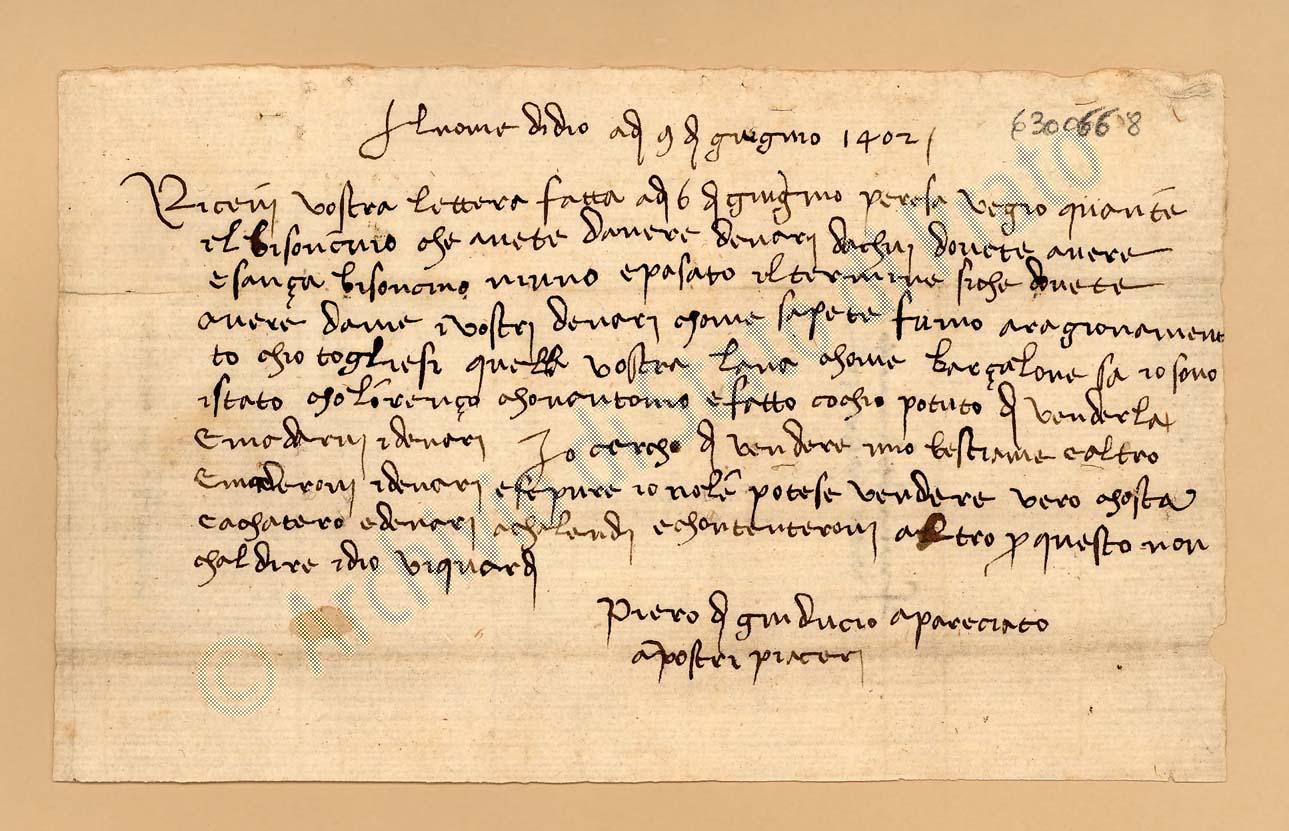 Al nome didio adj 9 dj giugnio 1402
6300668
Ricievj vostra lettera fatta adj 6 dj giugnio peresa vegio quante
il bisoncnio che avete davere denarj dachuj dovete avere
esança bisoncino niuno epasato iltermine siche dovete
avere dame i vostrj denarj chome sapete fumo aragionamen
to chio togliesi quella vostra lana chome barçalone sa io sono
istato cholorenço chonantonio efatto cochio potuto dj venderla
idenarj Io cercho dj vendere mio bestiame e altro
idenarj esepure io nole potese vendere vero chosta
eachatero edenarj achalendj echontenterovi altro p questo non
chaldire idio viguardj
Piero dj guiduccio apareciato
avostri piacerj
© Archivio di Stato di Prato